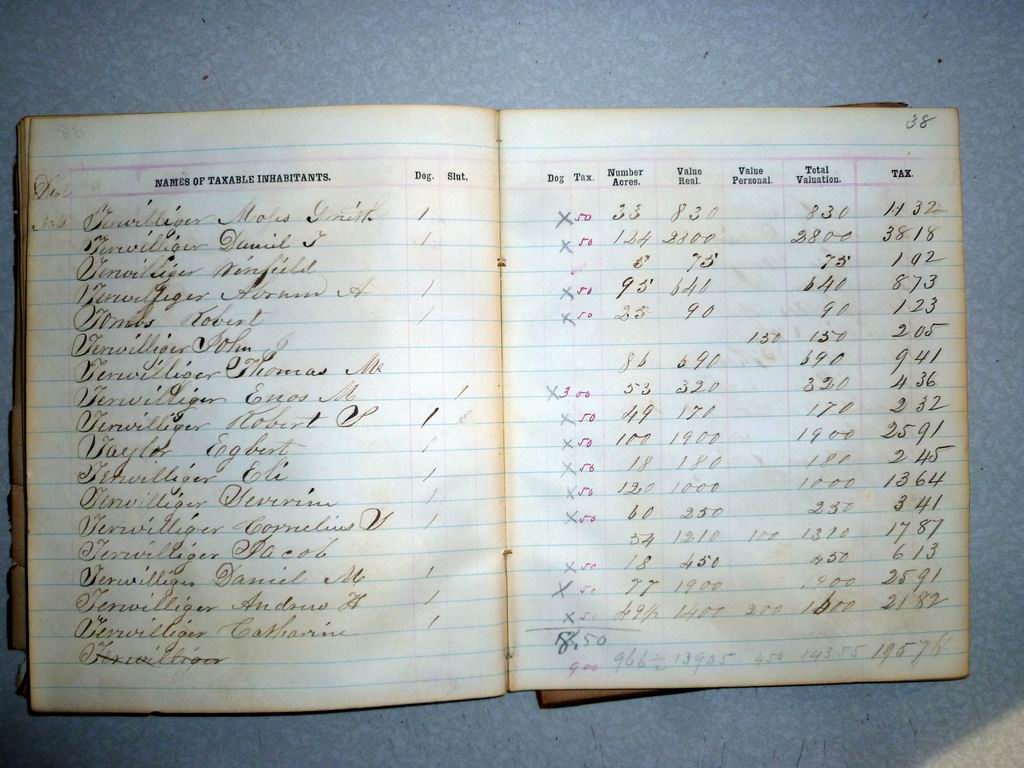 38
NAMES OF TAXABLE INHABITANTS. Dog. Slut. Dog Tax. Number Acres. Value Real. Value Personal. Total Valuation. TAX.
Terwilliger Moses Smith 1 X 50 33 830 830 11 32
Terwilliger Daniel T 1 X 50 124 2800 2800 38 18
Terwilliger Winfield 5 75 75 1 02
Terwilliger Abram A 1 X 50 95 640 640 8 73
Robert 1 X 50 25 90 90 1 23
Terwilliger John J 150 150 2 05
Terwilliger Thomas Mc 86 690 690 9 41
Terwilliger Enos M 1 X 3 00 53 320 320 4 36
Terwilliger Robert S 1 X 50 49 170 170 2 32
Taylor Egbert 1 X 50 100 1900 1900 25 91
Terwilliger Eli 1 X 50 18 180 180 2 45
Terwilliger Severine 1 X 50 120 1000 1000 13 64
Terwilliger Cornelius Y 1 X 50 60 250 250 3 41
Terwilliger Jacob 54 1210 100 1310 17 87
Terwilliger Daniel M 1 X 50 18 450 450 6 13
Terwilliger Andrew H 1 X 50 77 1900 1900 25 91
Terwilliger Catharine 1 X 50 49½ 1400 200 1600 21 82
Terwilliger 8.50
9 00 966½ 13905 450 14355 195 76